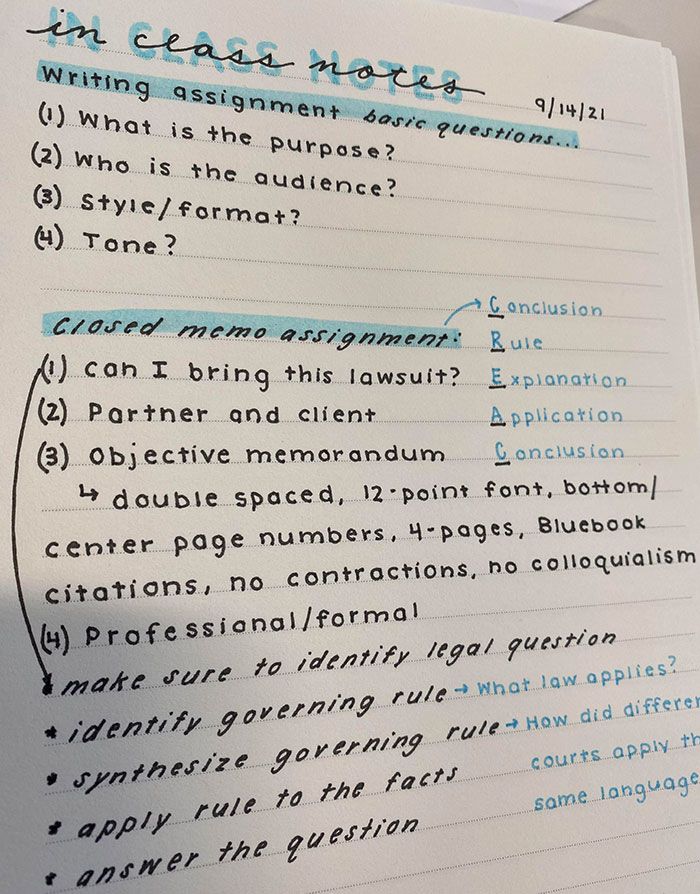 IN CLASS NOTES
in class notes
9/14/21
Writing assignment basic questions...
(1) What is the purpose?
(2) Who is the audience?
(3) Style/format?
(4) Tone?
Closed memo assignment:
Conclusion
Rule
Explanation
Application
Conclusion
(1) Can I bring this lawsuit?
(2) Partner and client
(3) Objective memorandum
↳ double spaced, 12-point font, bottom/
center page numbers, 4-pages, Bluebook
citations, no contractions, no colloquialism
(4) Professional/formal
* make sure to identify legal question
* identify governing rule → What law applies?
* synthesize governing rule → How did differen
courts apply th
same language
* apply rule to the facts
* answer the question